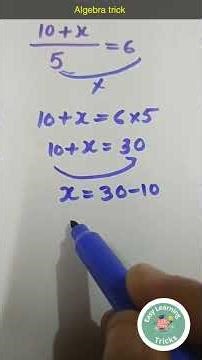 Algebra trick
10+x
5
=6
x
10+x=6x5
10+x=30
x=30-10
Easy Learning
Tricks